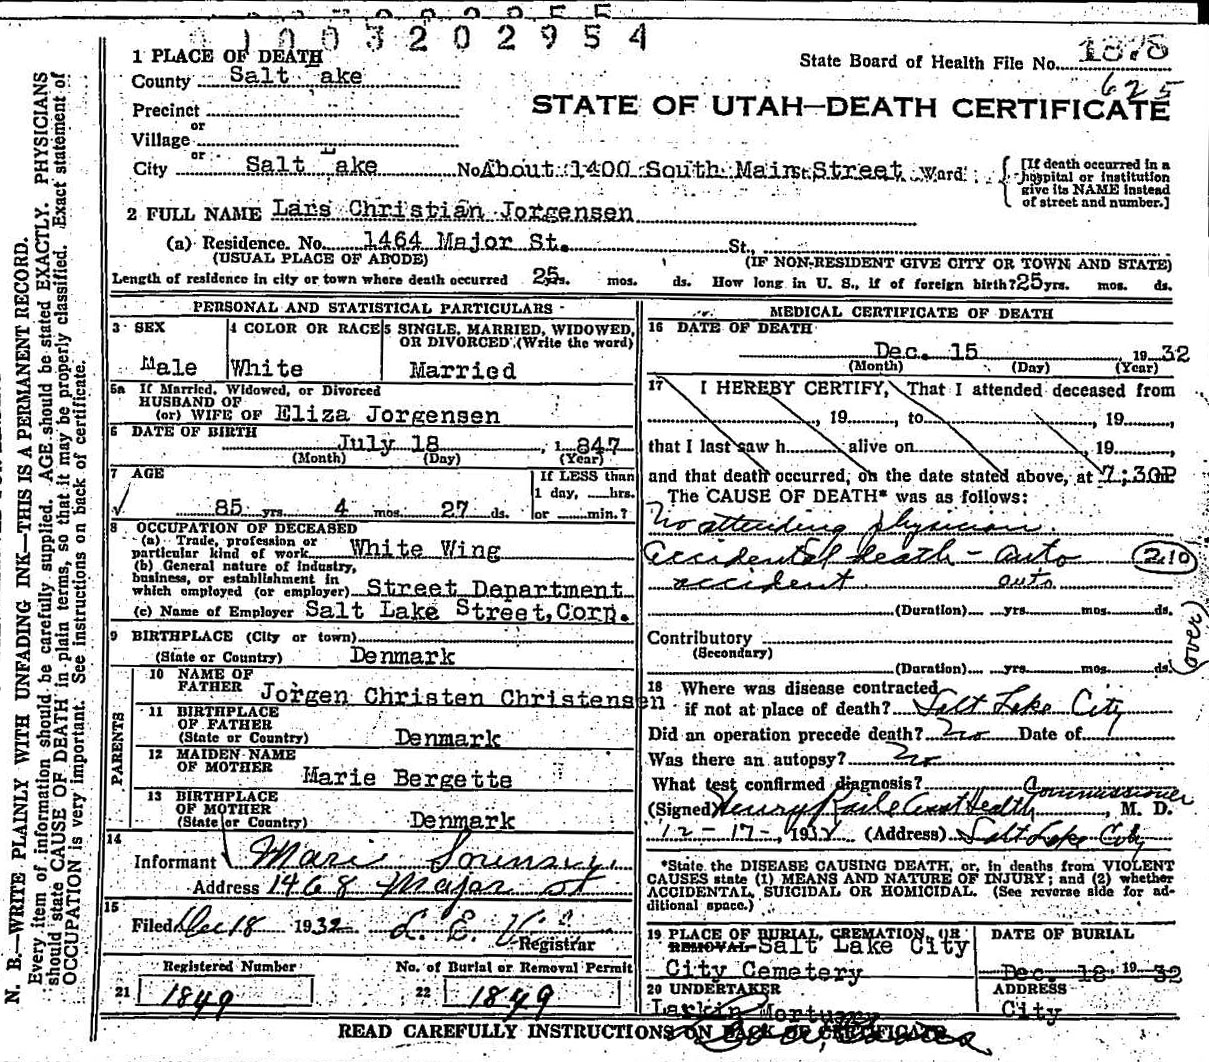 1003202954
1 PLACE OF DEATH
County Salt ake
State Board of Health File No. 1878
625
Precinct
or
Village
or
City Salt Lake No. About 1400 South Main Street Ward
STATE OF UTAH—DEATH CERTIFICATE
[If death occurred in a
hospital or institution
give its NAME instead
of street and number.]
2 FULL NAME Lars Christian Jorgensen
(a) Residence. No. 1464 Major St. St.,
(USUAL PLACE OF ABODE) (IF NON-RESIDENT GIVE CITY OR TOWN AND STATE)
Length of residence in city or town where death occurred 25 yrs. mos. ds. How long in U. S., if of foreign birth? 25 yrs. mos. ds.
PERSONAL AND STATISTICAL PARTICULARS
3 SEX Male
4 COLOR OR RACE White
5 SINGLE, MARRIED, WIDOWED,
OR DIVORCED (Write the word)
Married
5a If Married, Widowed, or Divorced
HUSBAND OF
(or) WIFE OF Eliza Jorgensen
6 DATE OF BIRTH July 18, 1847
(Month) (Day) (Year)
7 AGE
85 yrs. 4 mos. 27 ds.
If LESS than
1 day, hrs.
or min.?
8 OCCUPATION OF DECEASED
(a) Trade, profession or
particular kind of work White Wing
(b) General nature of industry,
business, or establishment in
which employed (or employer) Street Department
(c) Name of Employer Salt Lake Street, Corp.
9 BIRTHPLACE (City or town)
(State or Country) Denmark
PARENTS
10 NAME OF
FATHER Jorgen Christen Christensen
11 BIRTHPLACE
OF FATHER
(State or Country) Denmark
12 MAIDEN NAME
OF MOTHER Marie Bergette
13 BIRTHPLACE
OF MOTHER
(State or Country) Denmark
14
Informant Marie
Address 1468 Major St
15
Filed Dec 18 1932 L. E.
Registrar
Registered Number
21 1849
No. of Burial or Removal Permit
22 1849
MEDICAL CERTIFICATE OF DEATH
16 DATE OF DEATH
Dec. 15 1932
(Month) (Day) (Year)
17 I HEREBY CERTIFY, That I attended deceased from
, 19 , to , 19 ,
that I last saw h alive on , 19 ,
and that death occurred, on the date stated above, at 7:30P m.
The CAUSE OF DEATH* was as follows:
No attending physician.
accidental death - auto 210
accident auto
(Duration) yrs. mos. ds.
(over)
Contributory
(Secondary)
(Duration) yrs. mos. ds.
18 Where was disease contracted
if not at place of death? Salt Lake City
Did an operation precede death? No Date of
Was there an autopsy? No
What test confirmed diagnosis?
Commissioner
(Signed) Henry Health, M. D.
12-17-, 1932 (Address) Salt Lake City
*State the DISEASE CAUSING DEATH, or, in deaths from VIOLENT
CAUSES state (1) MEANS AND NATURE OF INJURY; and (2) whether
ACCIDENTAL, SUICIDAL OR HOMICIDAL. (See reverse side for ad-
ditional space.)
19 PLACE OF BURIAL, CREMATION, OR
REMOVAL Salt Lake City
City Cemetery
DATE OF BURIAL
Dec. 18 1932
20 UNDERTAKER
Larkin Mortuary
ADDRESS
City
READ CAREFULLY INSTRUCTIONS ON BACK OF CERTIFICATE
N. B.—WRITE PLAINLY WITH UNFADING INK—THIS IS A PERMANENT RECORD.
Every item of information should be carefully supplied. AGE should be stated EXACTLY. PHYSICIANS
should state CAUSE OF DEATH in plain terms, so that it may be properly classified. Exact statement of
OCCUPATION is very important. See instructions on back of certificate.